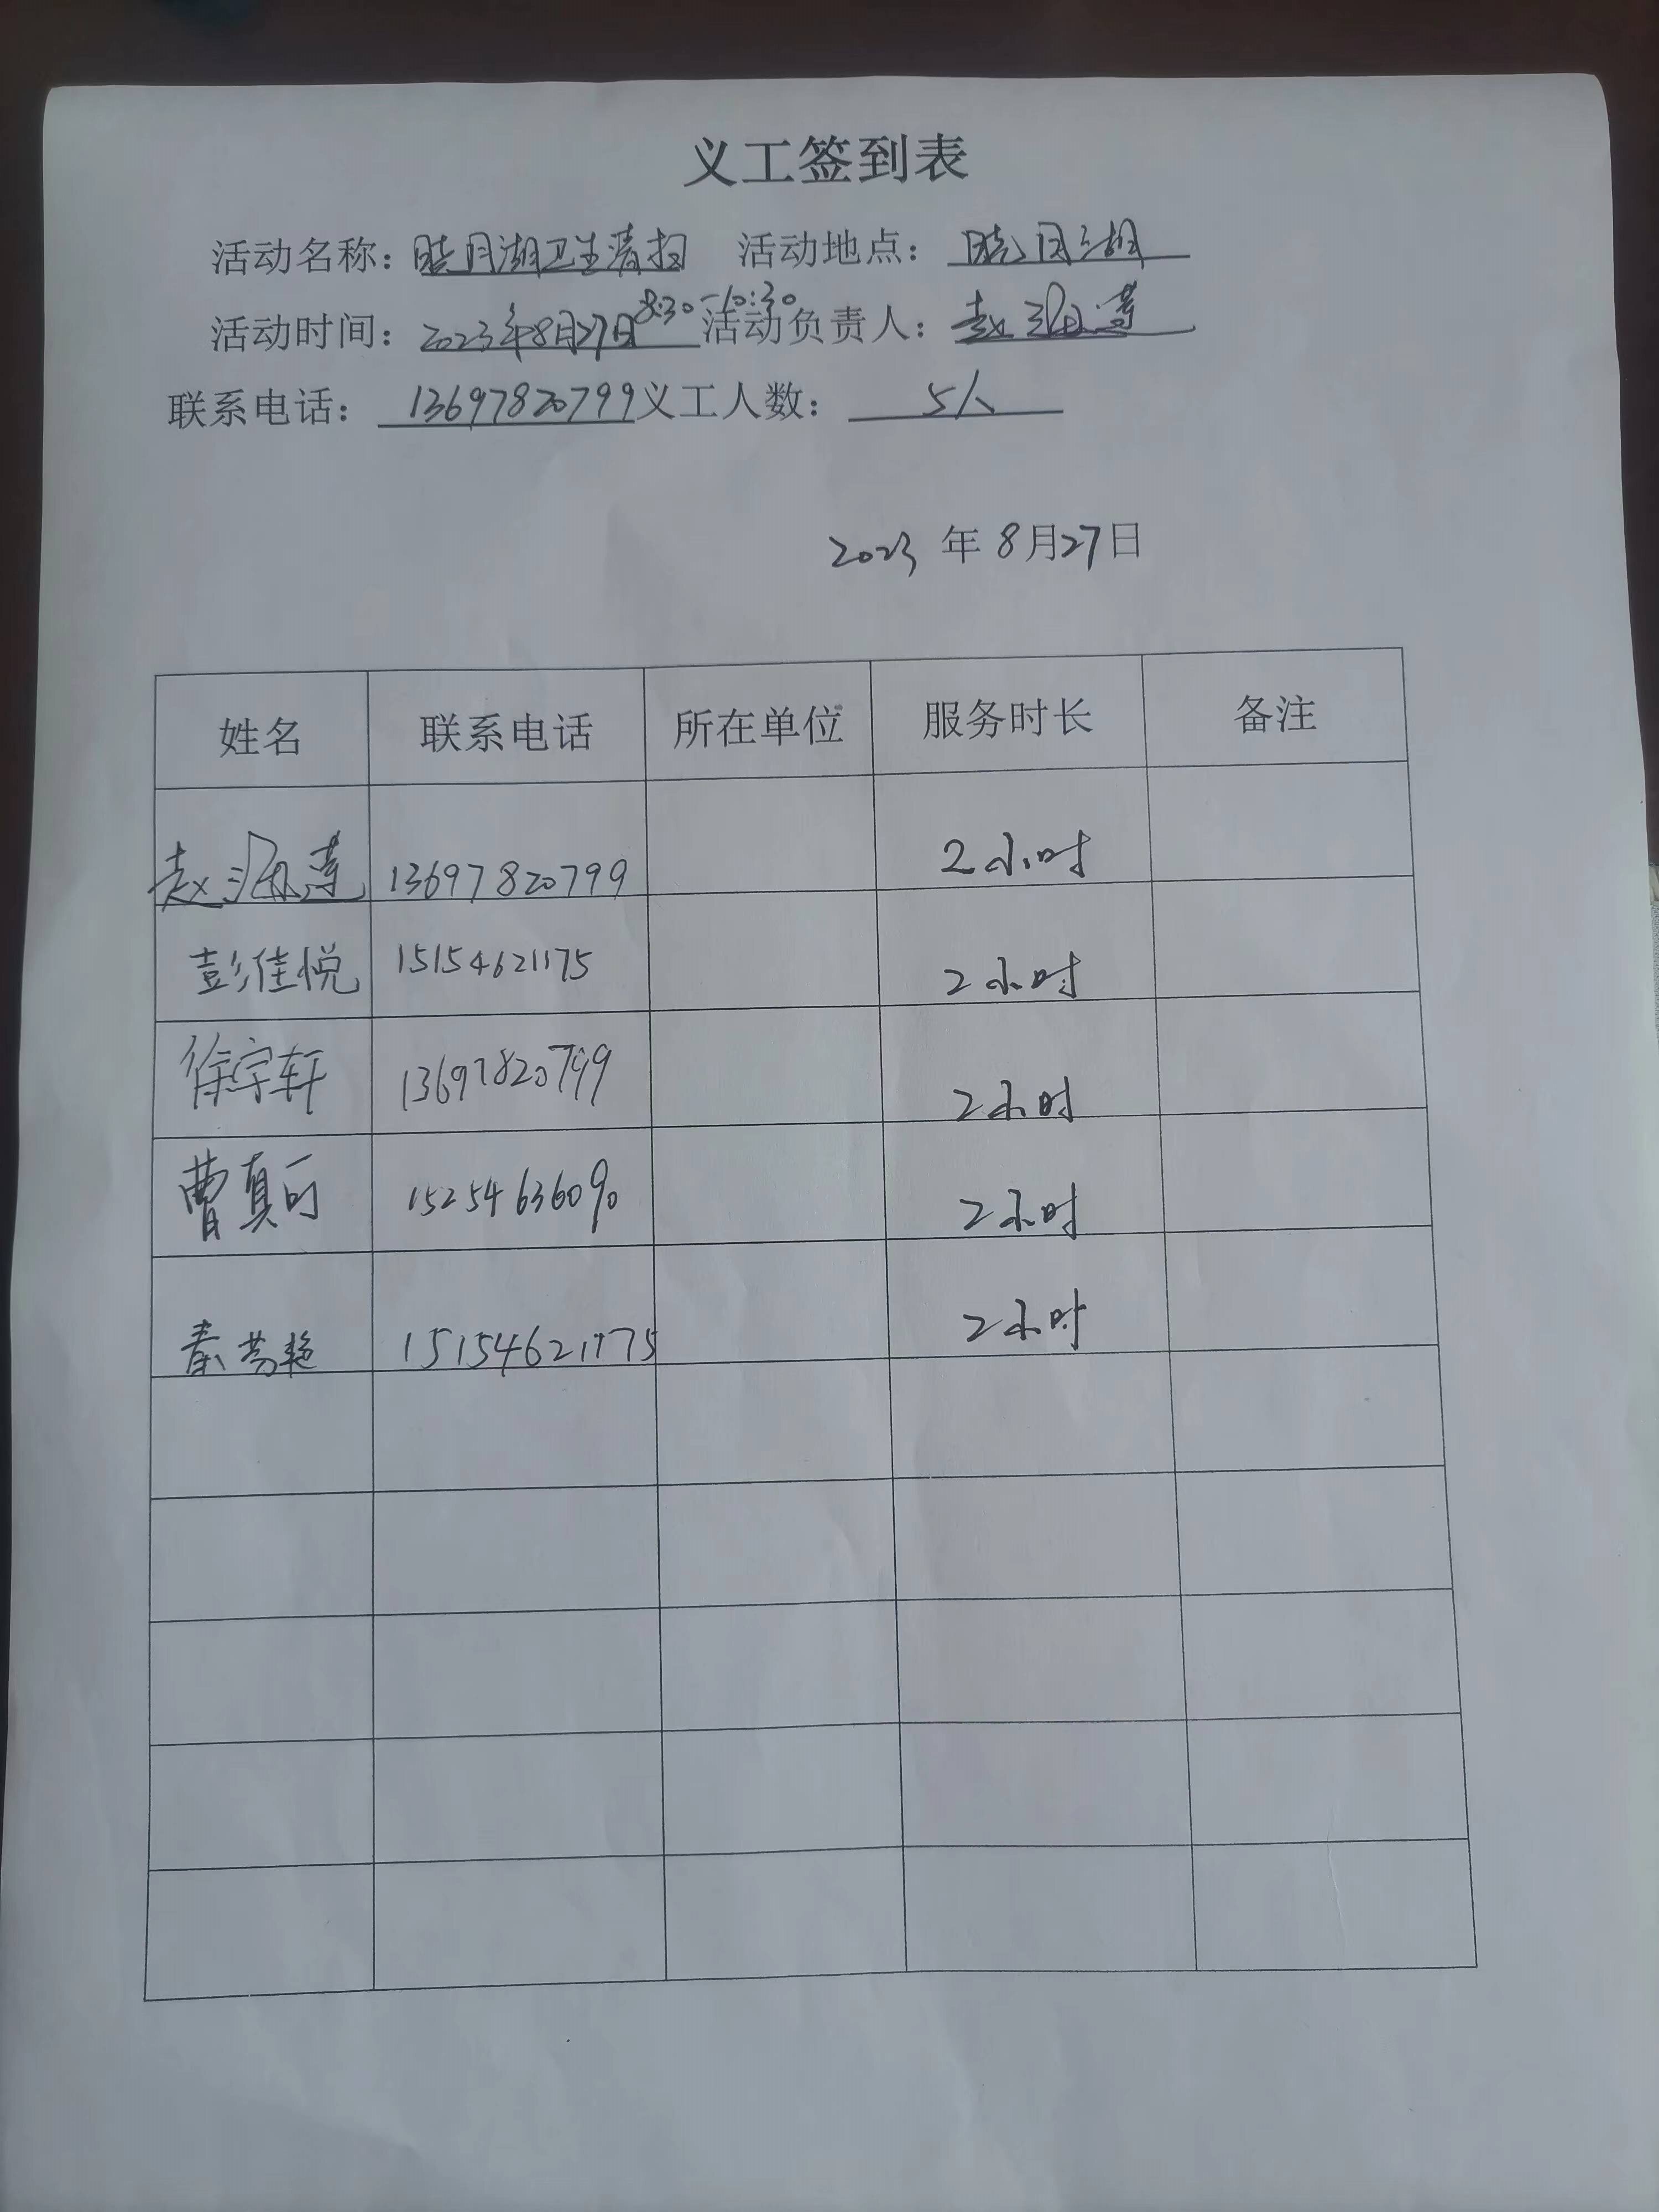 义工签到表
活动名称：晓月湖卫生清扫 活动地点：晓月湖
活动时间：2023年8月27日8:30-10:30 活动负责人：赵
联系电话：13697820799 义工人数：5人
2023年8月27日
姓名 联系电话 所在单位 服务时长 备注
赵 13697820799 2小时
彭佳悦 15154621175 2小时
徐宇轩 13697820799 2小时
曹真可 15254636090 2小时
秦艳 15154621175 2小时